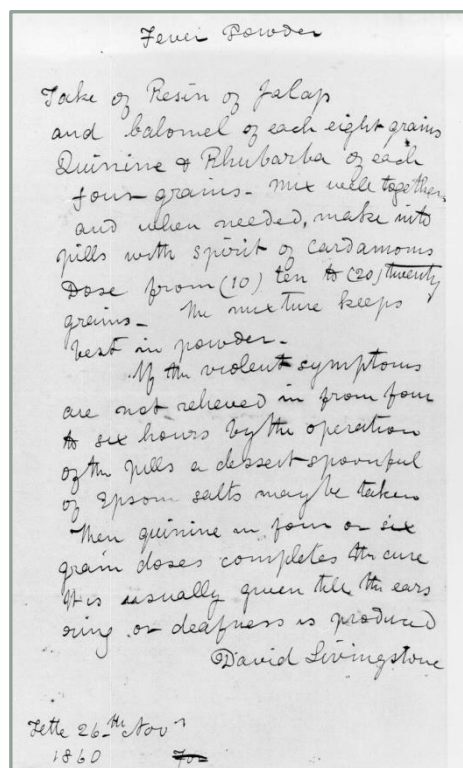 Fever Powder
Take of Resin of Jalap
and Calomel of each eight grains
Quinine & Rhubarba of each
four grains - mix well together
and when needed, make into
pills with spirit of cardamoms
Dose from (10) ten to (20) twenty
grains - The mixture keeps
best in powder -
If the violent symptoms
are not relieved in from four
to six hours by the operation
of the pills a dessert spoonful
of Epsom salts may be taken
Then quinine in four or six
grain doses completes the cure
It is usually given till the ears
ring or deafness is produced
David Livingstone
Tette 26th Novr
1860